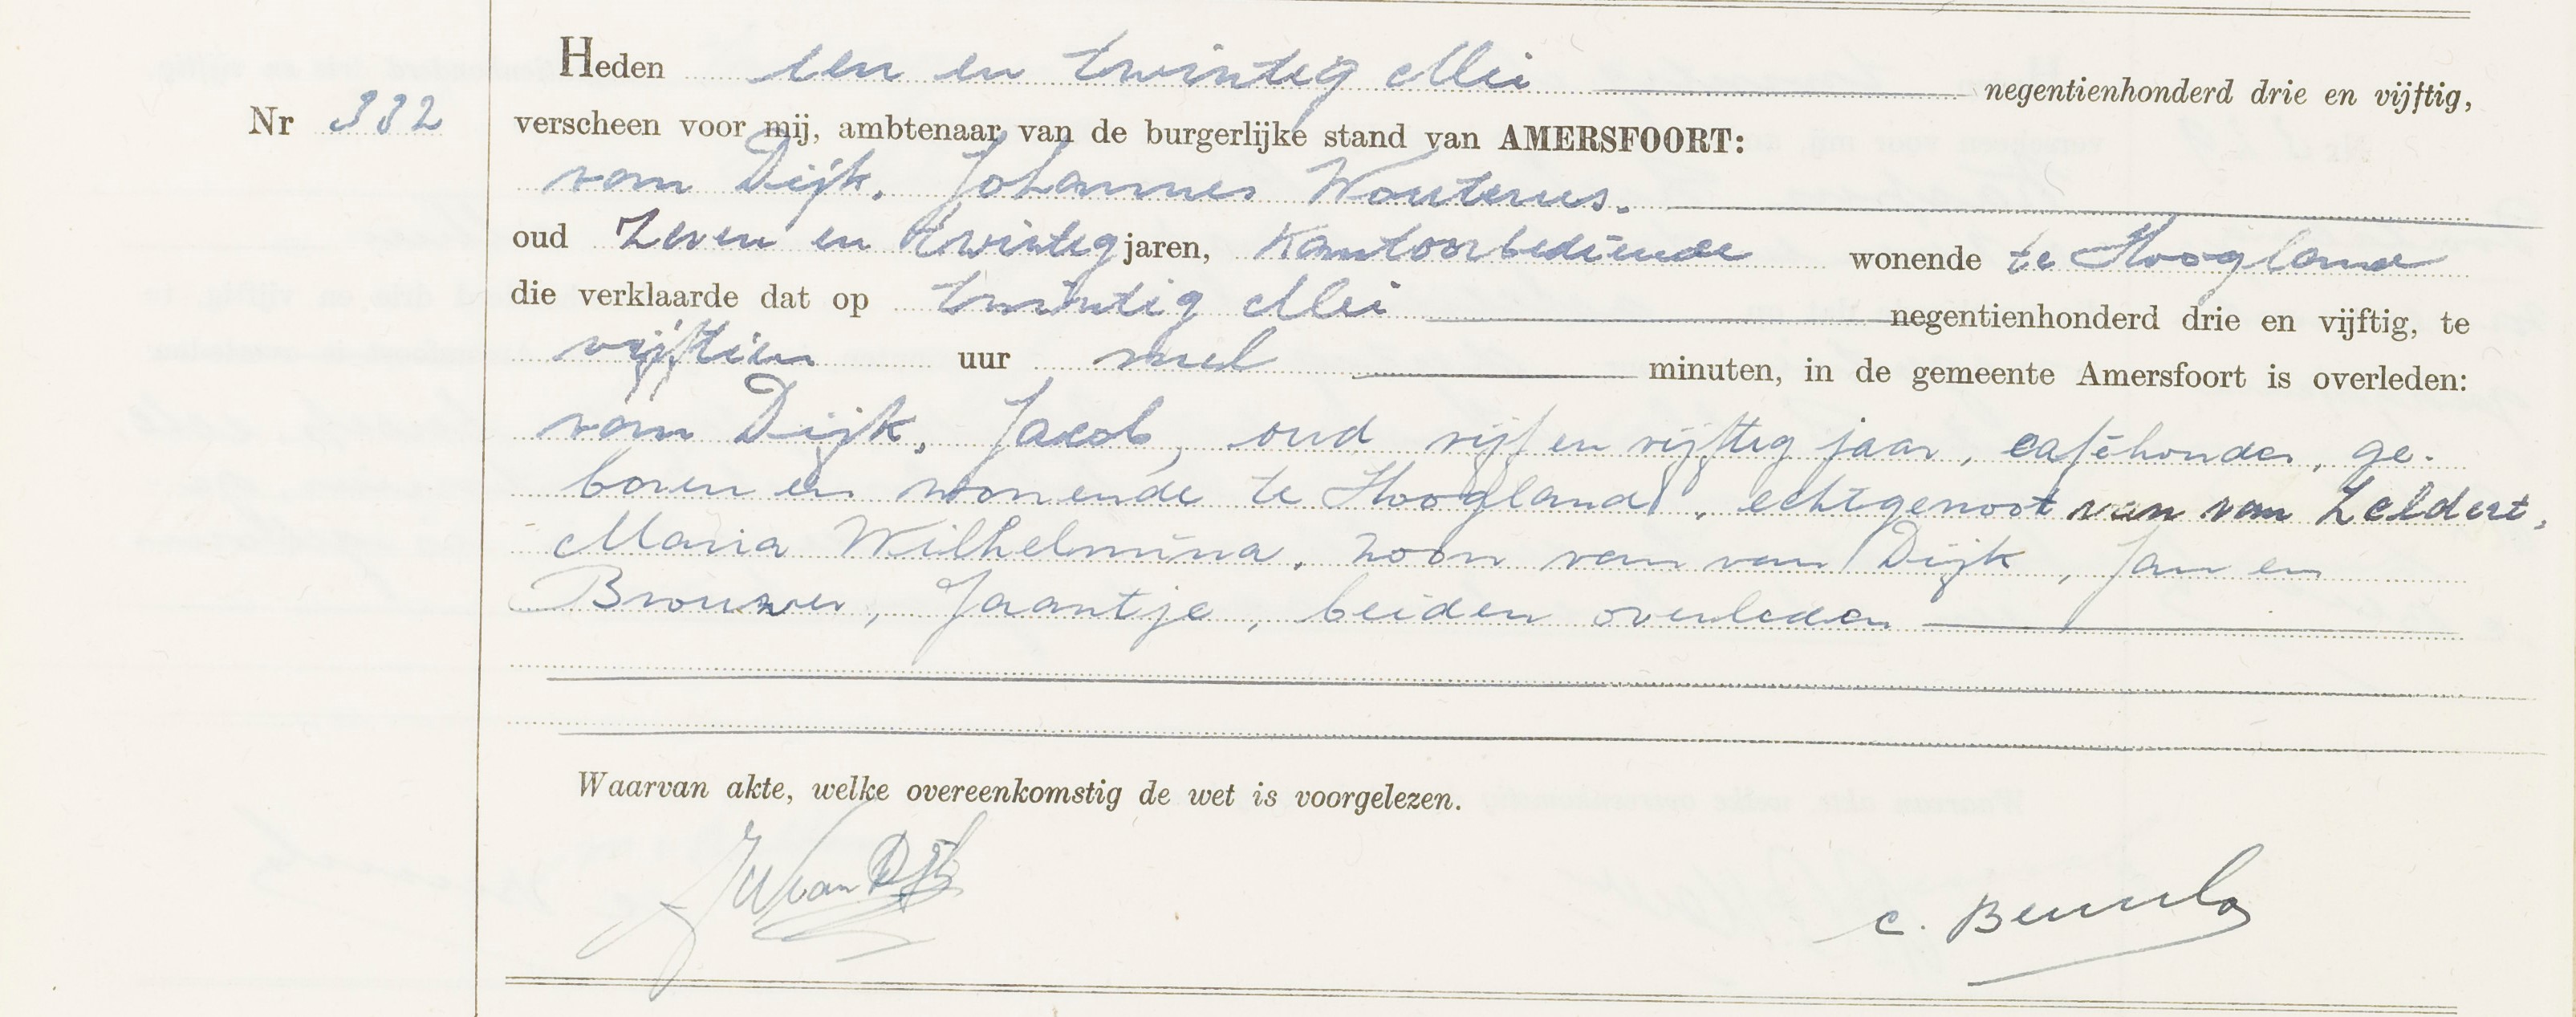 Heden een en twintig Mei negentienhonderd drie en vijftig,
Nr 332
verscheen voor mij, ambtenaar van de burgerlijke stand van AMERSFOORT:
van Dijk, Johannes Wouterus.
oud Zeven en twintig jaren, Kantoorbediende wonende te Hoogland
die verklaarde dat op twintig Mei negentienhonderd drie en vijftig, te
vijftien uur nul minuten, in de gemeente Amersfoort is overleden:
van Dijk, Jacob, oud vijf en vijftig jaar, caféhouder, ge-
boren en wonende te Hoogland, echtgenoot van van Zeldert,
Maria Wilhelmina, zoon van van Dijk, Jan en
Brouwer, Jaantje, beiden overleden
Waarvan akte, welke overeenkomstig de wet is voorgelezen.
JW van Dijk
C.